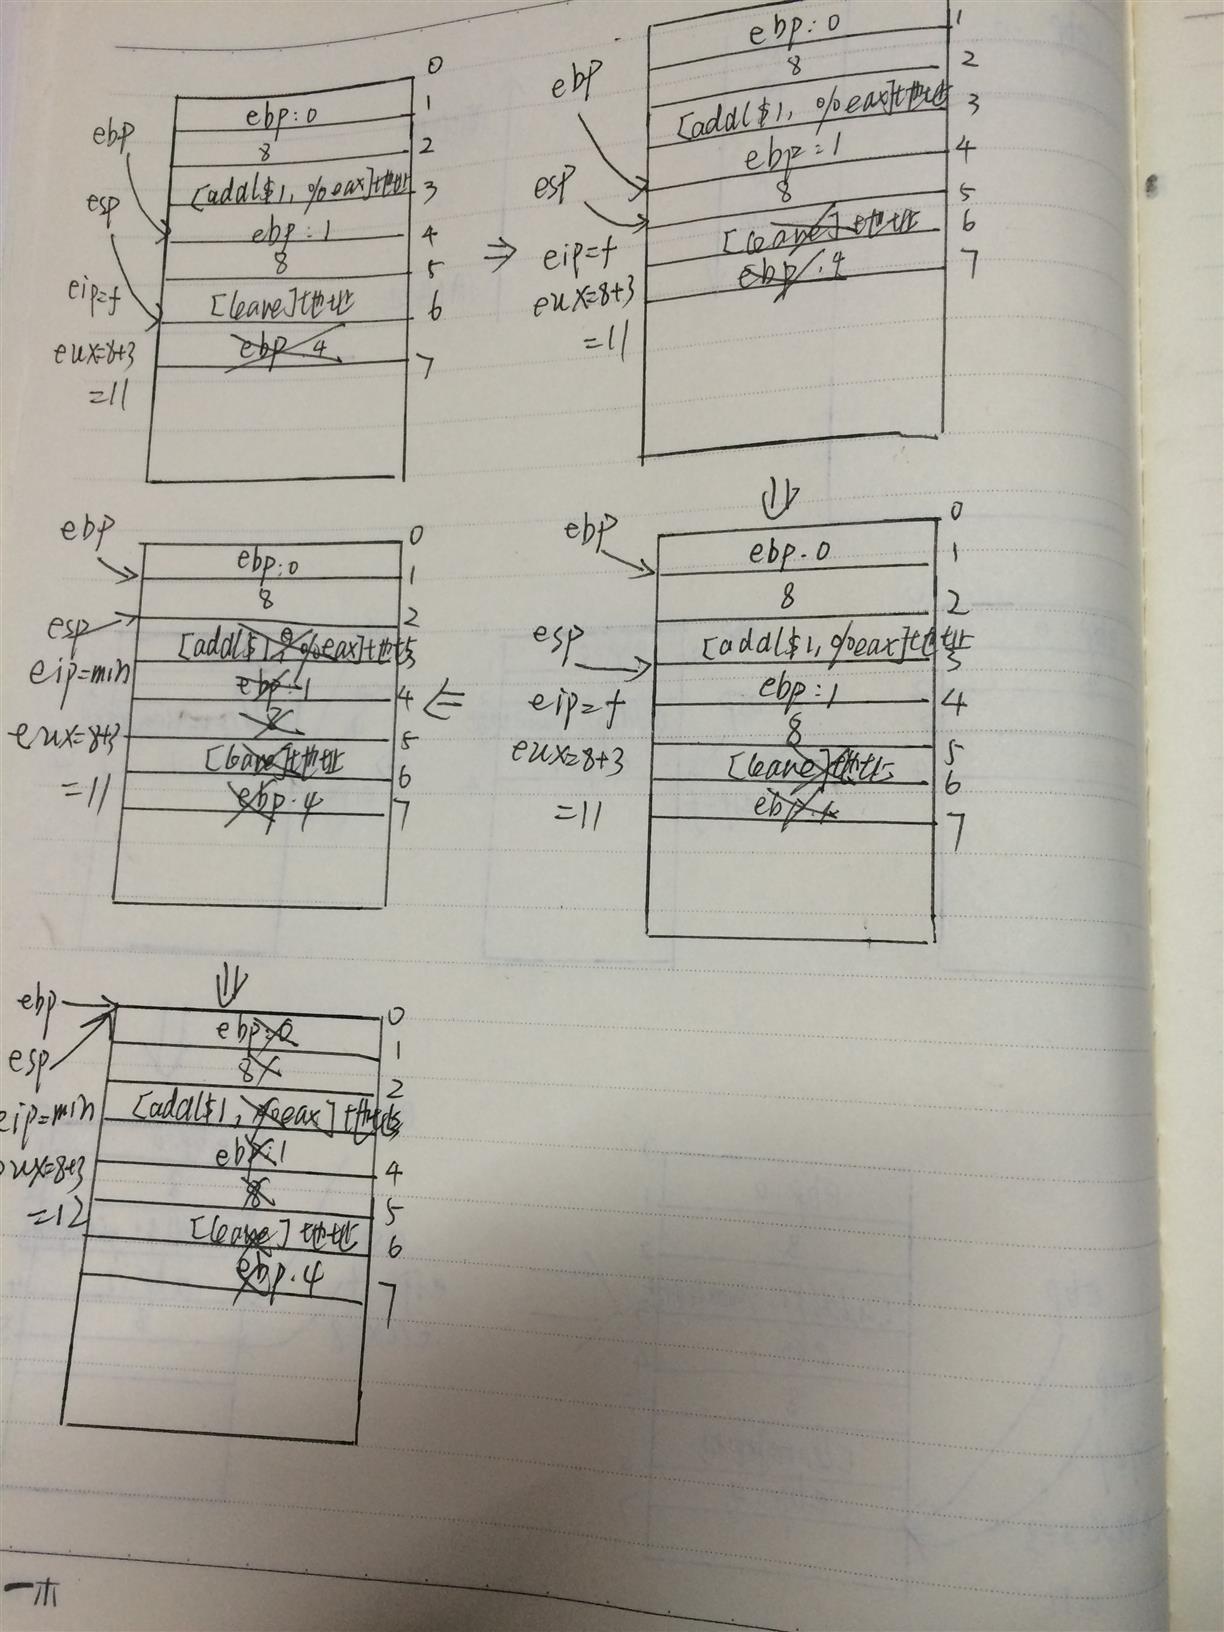 0
ebp:0 1
ebp
8 2
[addl$1, %eax]地址 3
esp
ebp:1 4
8 5
eip=f
[leave]地址 6
eax=8+3
ebp:4 7
=11
⇒
ebp:0 1
8 2
ebp
[addl$1, %eax]地址 3
ebp:1 4
esp
8 5
[leave]地址 6
eip=f
ebp:4 7
eax=8+3
=11
⇓
0
ebp
ebp:0 1
8 2
esp
[addl$1,%eax]地址 3
ebp:1 4
eip=f
8 5
eax=8+3
[leave]地址 6
ebp:4 7
=11
⇐
ebp
0
ebp:0 1
8 2
esp
[addl$1, %eax]地址 3
eip=min
ebp:1 4
8 5
eax=8+3
[leave]地址 6
=11
ebp:4 7
⇓
ebp
0
ebp:0 1
esp
8 2
eip=min
[addl$1, %eax]地址 3
ebp:1 4
eax=8+3
8 5
=12
[leave]地址 6
ebp:4 7